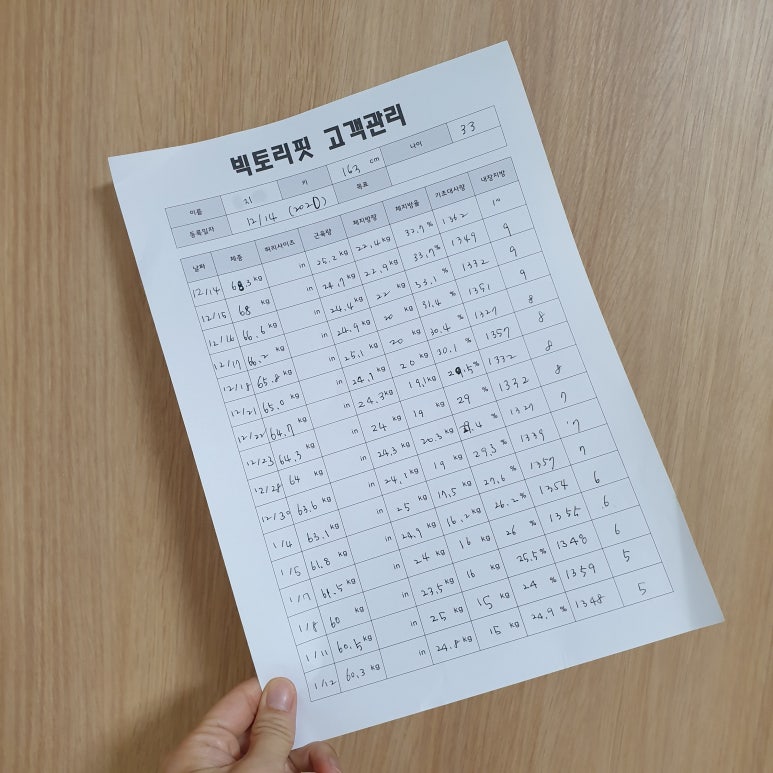 빅토리핏 고객관리
이름 지 키 163 cm 나이 33
등록일자 12/14 (2020) 목표
날짜 체중 허리사이즈 근육량 체지방량 체지방율 기초대사량 내장지방
12/14 68.3 kg in 25.2 kg 22.4 kg 32.7 % 1362 10
12/15 68 kg in 24.7 kg 22.9 kg 33.7 % 1349 9
12/16 66.6 kg in 24.4 kg 22 kg 33.1 % 1332 9
12/17 66.2 kg in 24.9 kg 20 kg 31.4 % 1351 9
12/18 65.8 kg in 25.1 kg 20 kg 30.4 % 1327 8
12/21 65.0 kg in 24.7 kg 20 kg 30.1 % 1357 8
12/22 64.7 kg in 24.3 kg 19.1 kg 29.5 % 1332 8
12/23 64.3 kg in 24 kg 19 kg 29 % 1332 8
12/28 64 kg in 24.3 kg 20.3 kg % 1327 7
12/30 63.6 kg in 24.1 kg 19 kg 29.3 % 1339 7
1/4 63.1 kg in 25 kg 17.5 kg 27.6 % 1357 7
1/5 61.8 kg in 24.9 kg 16.2 kg 26.2 % 1354 6
1/7 61.5 kg in 24 kg 16 kg 26 % 1355 6
1/8 60 kg in 23.5 kg 16 kg 25.5 % 1348 6
1/11 60.5 kg in 25 kg 15 kg 24 % 1359 5
1/12 60.3 kg in 24.8 kg 15 kg 24.9 % 1348 5